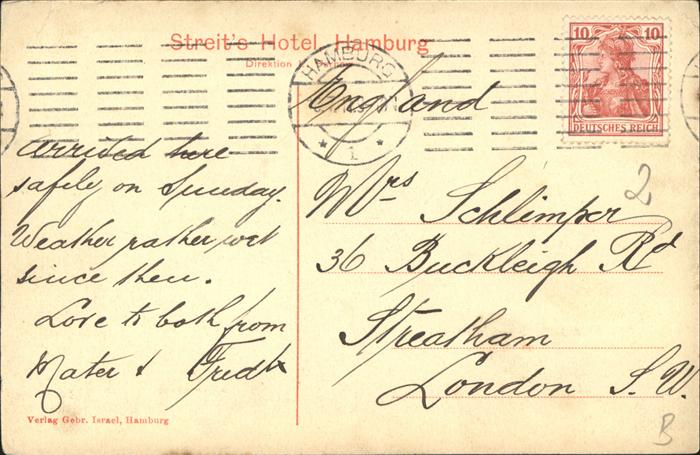 Streit's Hotel, Hamburg
Direktion
HAMBURG
10 10
DEUTSCHES REICH
England
arrived here
safely on Sunday.
Weather rather wet
since then.
Love to both from
Mater &
Mrs Schlimper
36 Buckleigh Rd
Streatham
London S.W.
2
B
1
Verlag Gebr. Israel, Hamburg